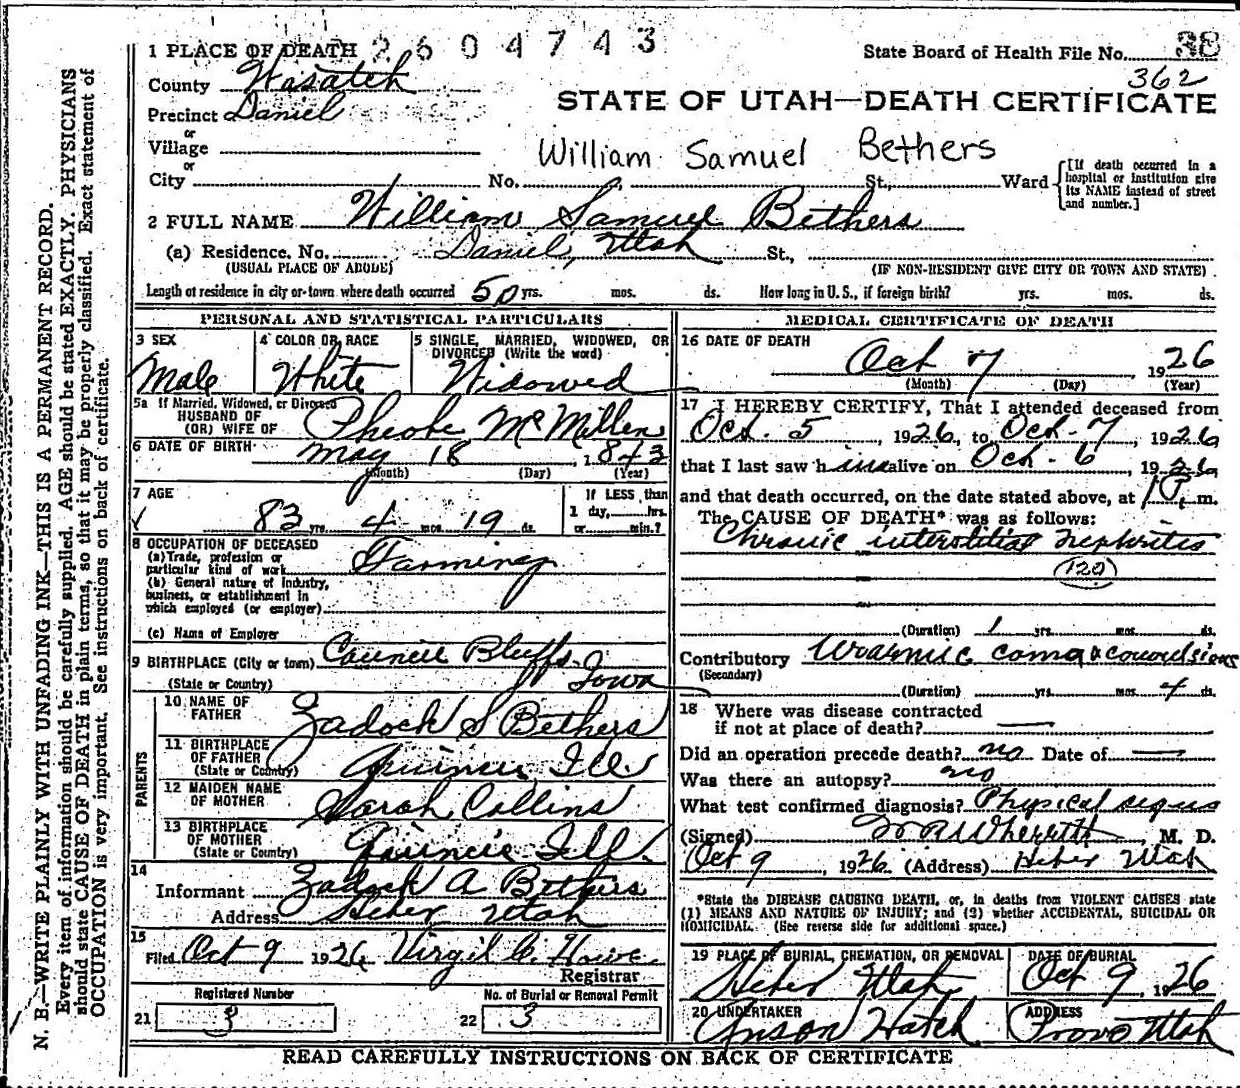 1 PLACE OF DEATH 2604743 State Board of Health File No. 38
County Wasatch 362
Precinct Daniel STATE OF UTAH—DEATH CERTIFICATE
or
Village
or
William Samuel Bethers
City No. St., Ward [If death occurred in a hospital or institution give its NAME instead of street and number.]
2 FULL NAME William Samuel Bethers
(a) Residence. No. Daniel, Utah St.,
(USUAL PLACE OF ABODE) (IF NON-RESIDENT GIVE CITY OR TOWN AND STATE)
Length of residence in city or town where death occurred 50 yrs. mos. ds. How long in U. S., if foreign birth? yrs. mos. ds.
PERSONAL AND STATISTICAL PARTICULARS
3 SEX 4 COLOR OR RACE 5 SINGLE, MARRIED, WIDOWED, OR DIVORCED (Write the word)
Male White Widowed
5a If Married, Widowed, or Divorced
HUSBAND OF
(OR) WIFE OF Pheobe McMillen
6 DATE OF BIRTH May 18, 1843
(Month) (Day) (Year)
7 AGE If LESS than
83 yrs. 4 mos. 19 ds. 1 day, hrs.
or min.?
8 OCCUPATION OF DECEASED
(a) Trade, profession or
particular kind of work Farming
(b) General nature of Industry,
business, or establishment in
which employed (or employer)
(c) Name of Employer
9 BIRTHPLACE (City or town) Council Bluffs
(State or Country) Iowa
PARENTS
10 NAME OF FATHER Zadock S Bethers
11 BIRTHPLACE OF FATHER (State or Country) Quincie Ill
12 MAIDEN NAME OF MOTHER Sarah Collins
13 BIRTHPLACE OF MOTHER (State or Country) Quincie Ill.
14
Informant Zadock A Bethers
Address Heber Utah
15
Filed Oct 9 1926 Virgil C. Howe
Registrar
Registered Number No. of Burial or Removal Permit
21 3 22 3
MEDICAL CERTIFICATE OF DEATH
16 DATE OF DEATH
Oct 7 1926
(Month) (Day) (Year)
17 I HEREBY CERTIFY, That I attended deceased from
Oct. 5, 1926, to Oct. 7, 1926
that I last saw him alive on Oct. 6, 1926
and that death occurred, on the date stated above, at m.
The CAUSE OF DEATH* was as follows:
Chronic interstitial nephritis
(120)
(Duration) 1 yrs. mos. ds.
Contributory Uraemic coma & convulsions
(Secondary)
(Duration) yrs. mos. 4 ds.
18 Where was disease contracted
if not at place of death?
Did an operation precede death? no Date of
Was there an autopsy? no
What test confirmed diagnosis? Physical signs
(Signed) W R Wherritt, M. D.
Oct 9, 1926 (Address) Heber Utah
*State the DISEASE CAUSING DEATH, or, in deaths from VIOLENT CAUSES state
(1) MEANS AND NATURE OF INJURY; and (2) whether ACCIDENTAL, SUICIDAL OR
HOMICIDAL. (See reverse side for additional space.)
19 PLACE OF BURIAL, CREMATION, OR REMOVAL DATE OF BURIAL
Heber Utah Oct 9, 1926
20 UNDERTAKER ADDRESS
Anson Hatch Provo Utah
READ CAREFULLY INSTRUCTIONS ON BACK OF CERTIFICATE
N. B.—WRITE PLAINLY WITH UNFADING INK—THIS IS A PERMANENT RECORD.
Every item of information should be carefully supplied. AGE should be stated EXACTLY. PHYSICIANS
should state CAUSE OF DEATH in plain terms, so that it may be properly classified. Exact statement of
OCCUPATION is very important. See instructions on back of certificate.